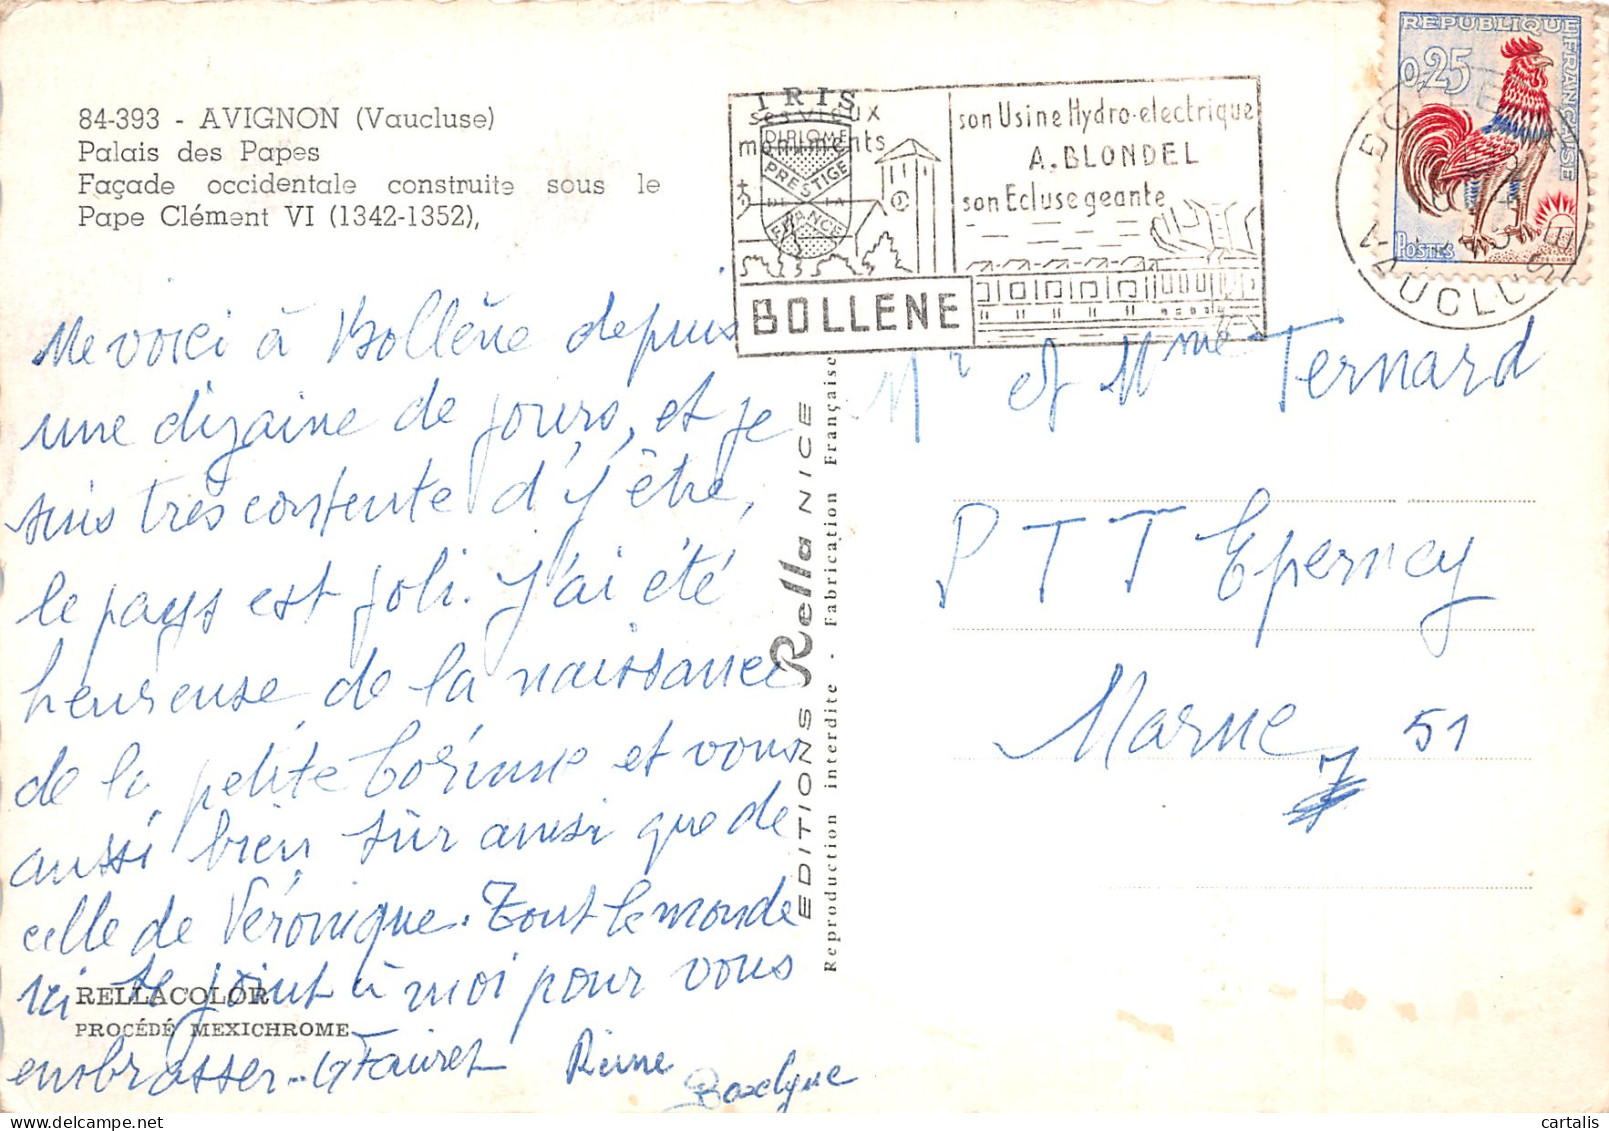 84-393 - AVIGNON (Vaucluse)
Palais des Papes
Façade occidentale construite sous le
Pape Clément VI (1342-1352),
IRIS
ses vieux
monuments
DIPLOME
PRESTIGE
DE LA
FRANCE
son Usine Hydro-electrique
A. BLONDEL
son Ecluse geante
BOLLENE
REPUBLIQUE FRANÇAISE
0,25
POSTES
BOLLENE
VAUCLUSE
Me voici à Bollène depuis
une dizaine de jours, et je
suis très contente d'y être,
le pays est joli. J'ai été
heureuse de la naissance
de la petite Corinne et vous
aussi bien sûr ainsi que de
celle de Véronique. Tout le monde
ici se joint à moi pour vous
embrasser.. G Fauret Reine
RELLACOLOR
PROCÉDÉ MEXICHROME
EDITIONS Rella NICE
Reproduction interdite - Fabrication Française
Mr et Mme Ternard
PTT Epernay
Marne 51
cartalis